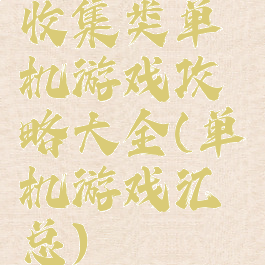 收集类单
机游戏攻
略大全(单
机游戏汇
总)